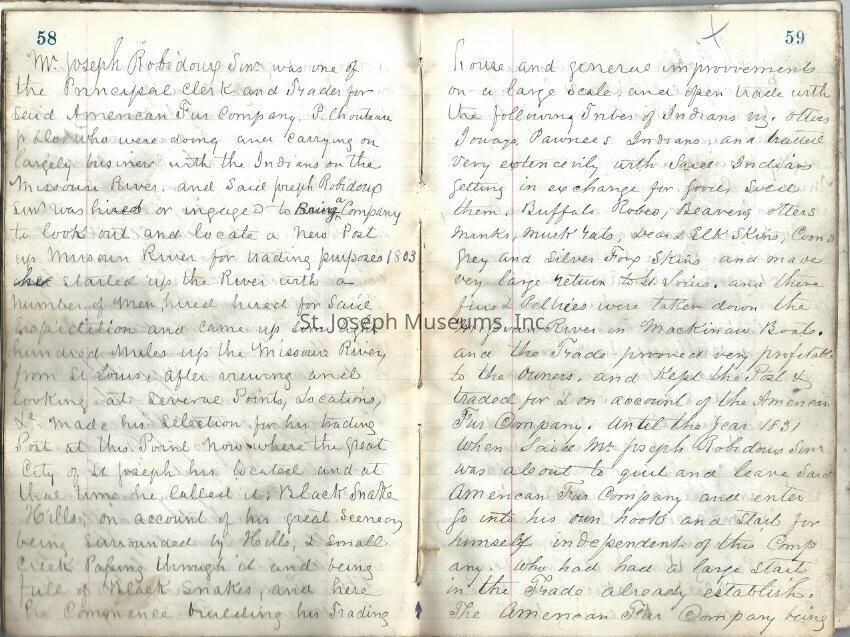 58
Mr Joseph Robidoux Sinr was one of
the Principal Clerk and Trader for
Said American Fur Company. P. Chouteau
& Co who were doing and carrying on
largely business with the Indians on the
Missouri River. and Said Joseph Robidoux
Sinr was hired or ingaged to Being a Company
to look out and locate a New Post
up Missouri River for trading purposes 1803
her started up the River with a
number of Men, hired hired for Said
Expidition and came up some eight
hundred Miles up the Missouri River,
from St Louis, after viewing and
looking at Several Points, Locations,
&c made his Selection for his trading
Post at this Point Now where the great
City of St Joseph his located and at
that time he called it, Black Snake
Hills, on account of his great Scenery
being Surrounded by Hills, & Small
Creek Passing through it and being
full of Black Snakes, and here
he Commence building his Trading
59
house and general improvements
on a large Scale, and open trade with
the following Tribes of Indians viz. ottos
Ioways Pawnees Indians, and traded
very extencevily with Said Indians
getting in exchange for goods, Sold
them, Buffalo Robes, Beavers, otters
Minks, Musk rats, Dears Elk Skins, Coons
grey and Silver Foxs Skins and made
very large return to St Louis, and there
furs & Robes were taken down the
Missouri River in Mackinaw Boats.
and the Trade prooved very profitable
to the owners, and Kept the Post &
traded for & on account of the American
Fur Company. Until the year 1831
When Said Mr Joseph Robidoux Sinr
was about to quit and leave Said
American Fur Company and enter
go into his own hook and Start for
himself independent of this Comp
any, Who had had a large Start
in the Trade already establish.
The American Fur Company being
St. Joseph Museums, Inc.